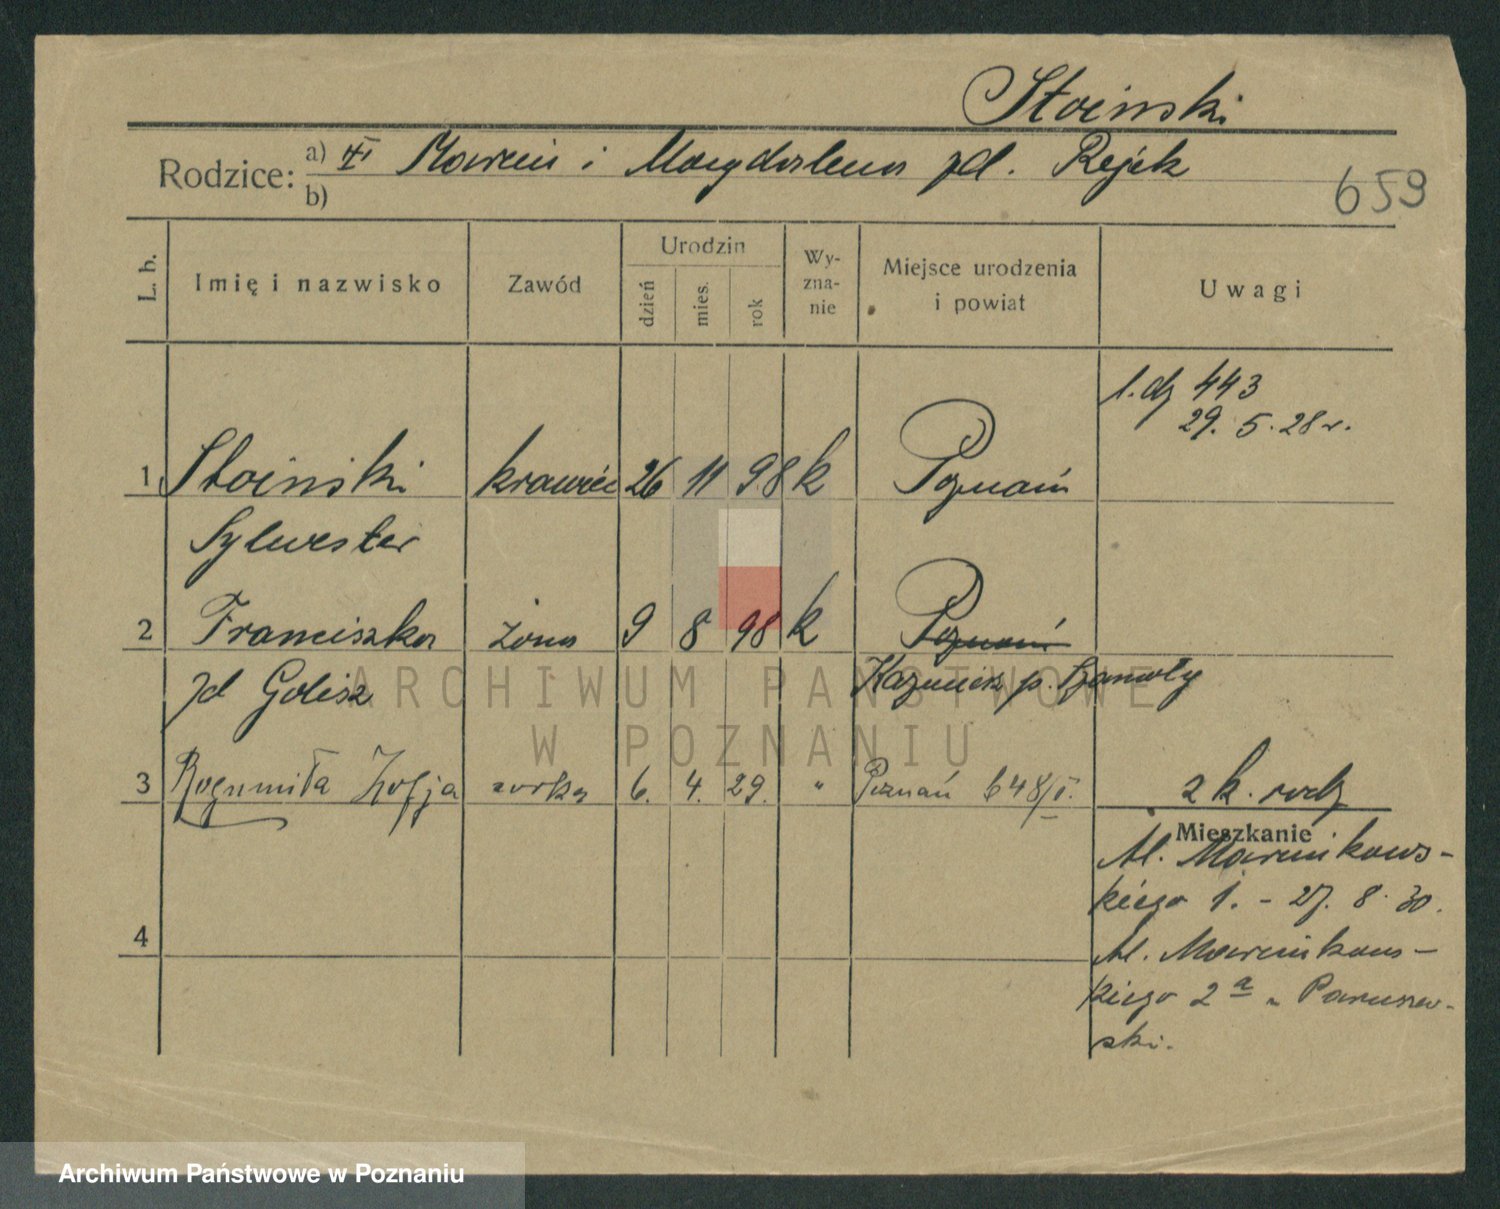 Stoinski
Rodzice: a) Marcin i Magdalena zd. Rejek
b)
659
L. b. Imię i nazwisko Zawód Urodzin dzień mies. rok Wyznanie Miejsce urodzenia i powiat Uwagi
l. dz 443
29. 5. 28 r.
1 Stoinski krawiec 26 11 98 k Poznań
Sylwester
2 Franciszka żona 9 8 98 k Poznań
zd Golisz Kazmierz p. Szamoty
3 Bogumiła Zofja córka 6. 4. 29. " Poznań 648/I. z k. rodz
Mieszkanie
Al. Marcinkows-
kiego 1. - 27. 8. 30.
4
Al. Marcinkows-
kiego 2a
ski.
ARCHIWUM PAŃSTWOWE
W POZNANIU
Archiwum Państwowe w Poznaniu